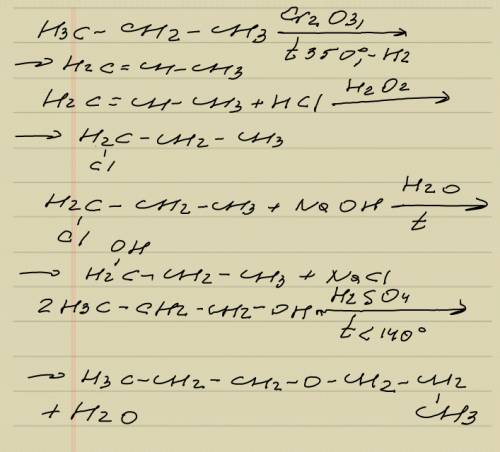 H3C - CH2 - CH3 Cr2O3, t 350°, -H2 →
→ H2C = CH - CH3
H2C = CH - CH3 + HCl H2O2 →
→ H2C - CH2 - CH3
Cl
H2C - CH2 - CH3 + NaOH H2O t →
Cl
OH
→ H2C - CH2 - CH3 + NaCl
2H3C - CH2 - CH2 - OH H2SO4 t < 140° →
→ H3C - CH2 - CH2 - O - CH2 - CH2
+ H2O CH3